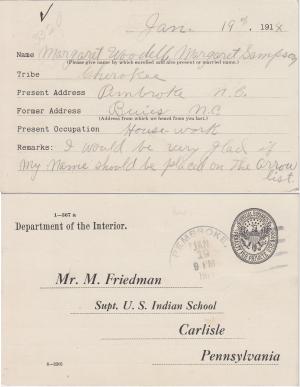 Jan. 19th, 1914
Name Margaret Woodell Margaret Sampson
(Please give name by which enrolled and also present or married name.)
Tribe Cherokee
Present Address Pembroke N.C.
Former Address Buies N.C.
(Address from which we heard from you last.)
Present Occupation House work
Remarks: I would be very glad if
my name should be placed on the Arrow
list.
1—567 a
Department of the Interior.
PEMBROKE,
JAN
19
9 PM
Mr. M. Friedman
Supt. U. S. Indian School
Carlisle
Pennsylvania